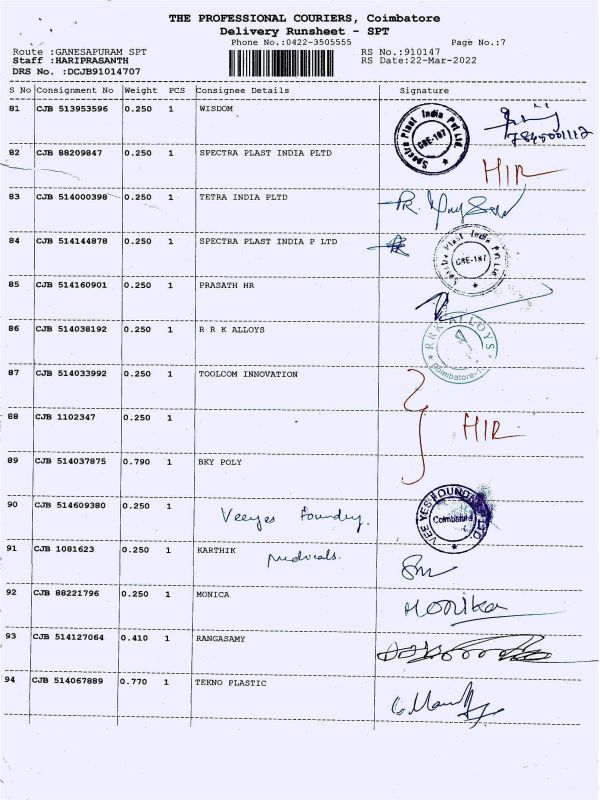 THE PROFESSIONAL COURIERS, Coimbatore
Delivery Runsheet - SPT
Phone No.:0422-3505555 Page No.:7
Route :GANESAPURAM SPT RS No.:910147
Staff :HARIPRASANTH RS Date:22-Mar-2022
DRS No. :DCJB91014707
S No Consignment No Weight PCS Consignee Details Signature
81 CJB 513953596 0.250 1 WISDOM
Spectra Plast India Pvt Ltd.
CBE-187
7845001112
82 CJB 88209847 0.250 1 SPECTRA PLAST INDIA PLTD
HIR
83 CJB 514000398 0.250 1 TETRA INDIA PLTD
84 CJB 514144878 0.250 1 SPECTRA PLAST INDIA P LTD
Spectra Plast India Pvt Ltd
CBE-187
85 CJB 514160901 0.250 1 PRASATH HR
86 CJB 514038192 0.250 1 R R K ALLOYS
RRK ALLOYS
87 CJB 514033992 0.250 1 TOOLCOM INNOVATION
88 CJB 1102347 0.250 1
HIR
89 CJB 514037875 0.790 1 BKY POLY
90 CJB 514609380 0.250 1 Veeyes Foundry.
VEE YES FOUNDRY
Coimbatore
91 CJB 1081623 0.250 1 KARTHIK medicals.
92 CJB 88221796 0.250 1 MONICA
Monika
93 CJB 514127064 0.410 1 RANGASAMY
94 CJB 514067889 0.770 1 TEKNO PLASTIC